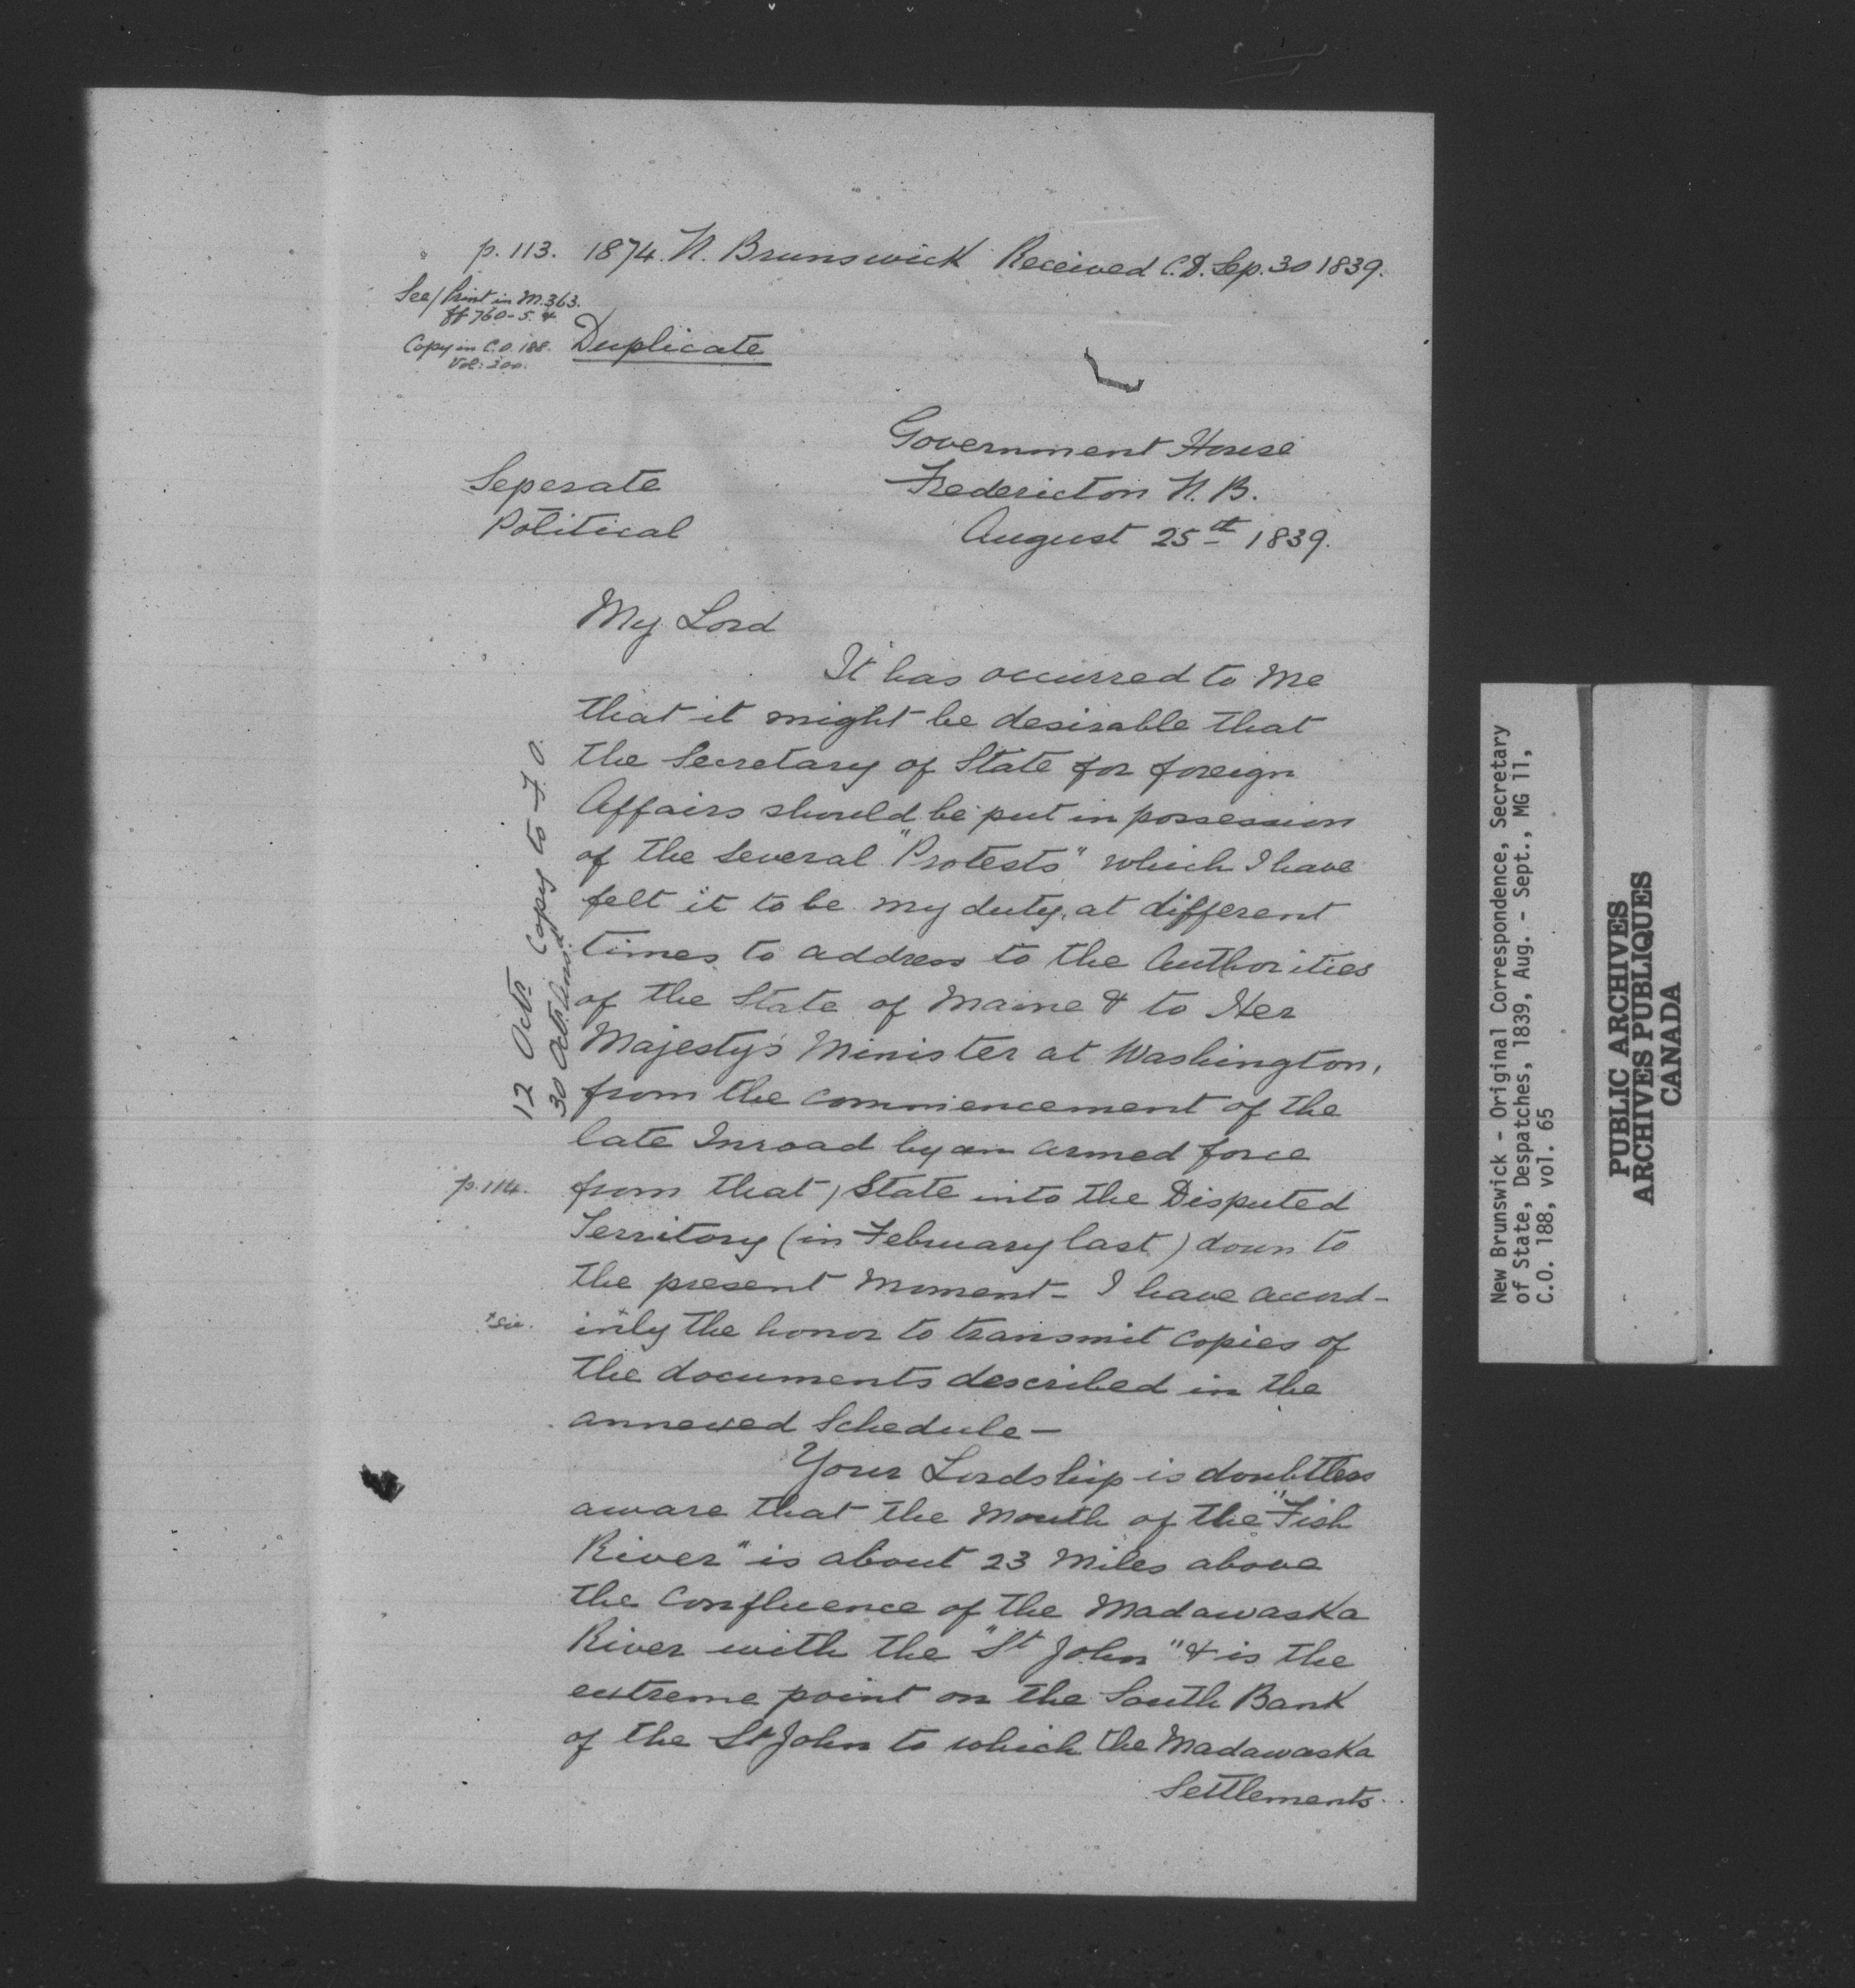 p. 113. 1874. N. Brunswick Received C.D. Sep. 30 1839.
See/ Print in M. 363.
ff 760-5. &
Copy in C.O. 188.
Vol: 200.
Duplicate
Government House
Fredericton N. B.
August 25th 1839.
Seperate
Political
My Lord
It has occurred to me
that it might be desirable that
the Secretary of State for foreign
Affairs should be put in possession
of the several "Protests" which I have
felt it to be my duty, at different
times, to address to the Authorities
of the State of Maine & to Her
Majesty's Minister at Washington,
from the commencement of the
late Inroad by an armed force
p. 114. from that / State into the Disputed
Territory (in February last) down to
the present moment - I have accord-
*sic. inly the honor to transmit copies of
the documents described in the
annexed Schedule -
Your Lordship is doubtless
aware that the mouth of the "Fish
River" is about 23 miles above
the Confluence of the Madawaska
River with the "St John" & is the
extreme point on the South Bank
of the St John to which the Madawaska
Settlements
12 Octr Copy to F. O.
30 Octr. Ansd
New Brunswick - Original Correspondence, Secretary
of State, Despatches, 1839, Aug. - Sept., MG 11,
C.O. 188, vol. 65
PUBLIC ARCHIVES
ARCHIVES PUBLIQUES
CANADA